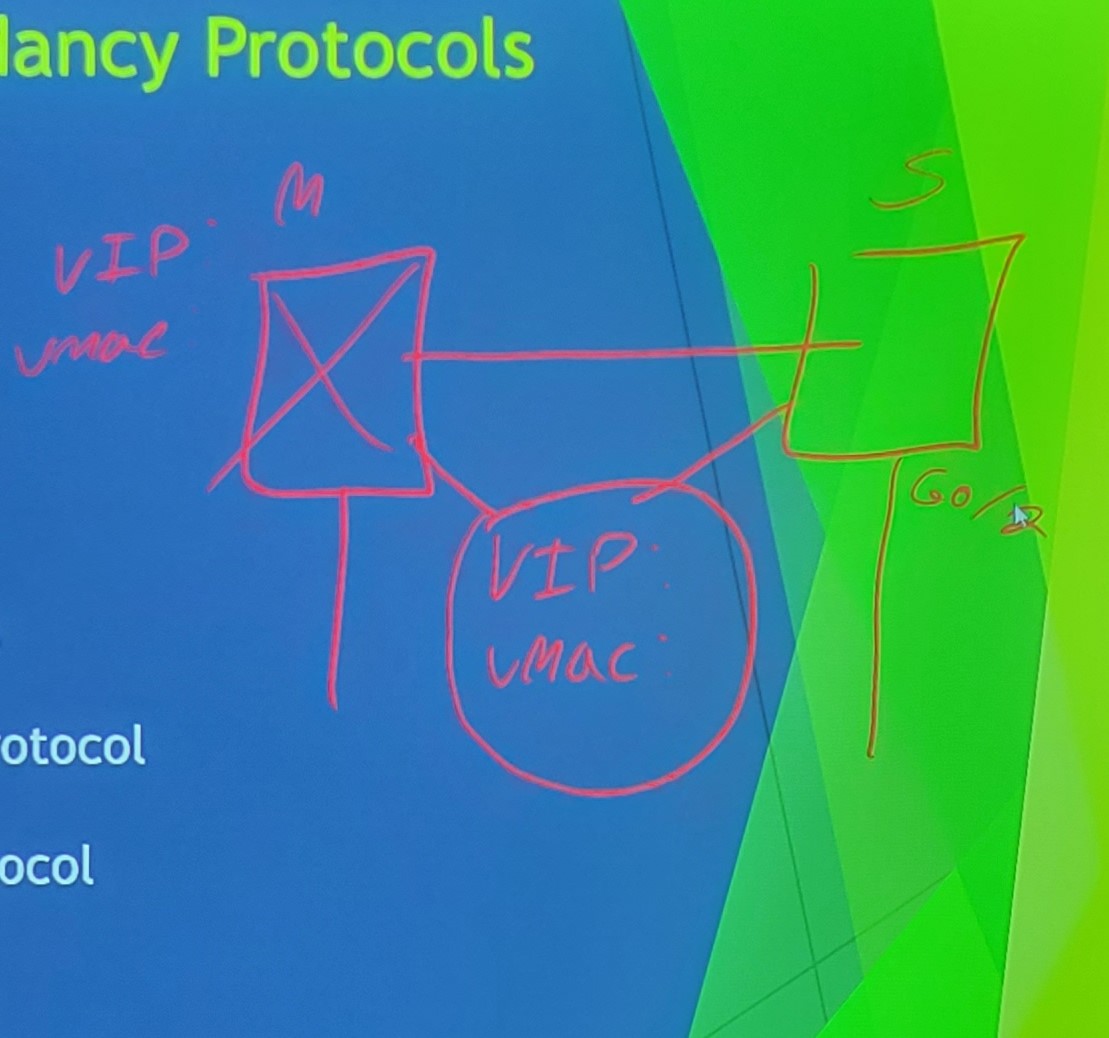 dancy Protocols
M
S
VIP:
vmac:
G0/2
VIP:
vMac:
rotocol
ocol